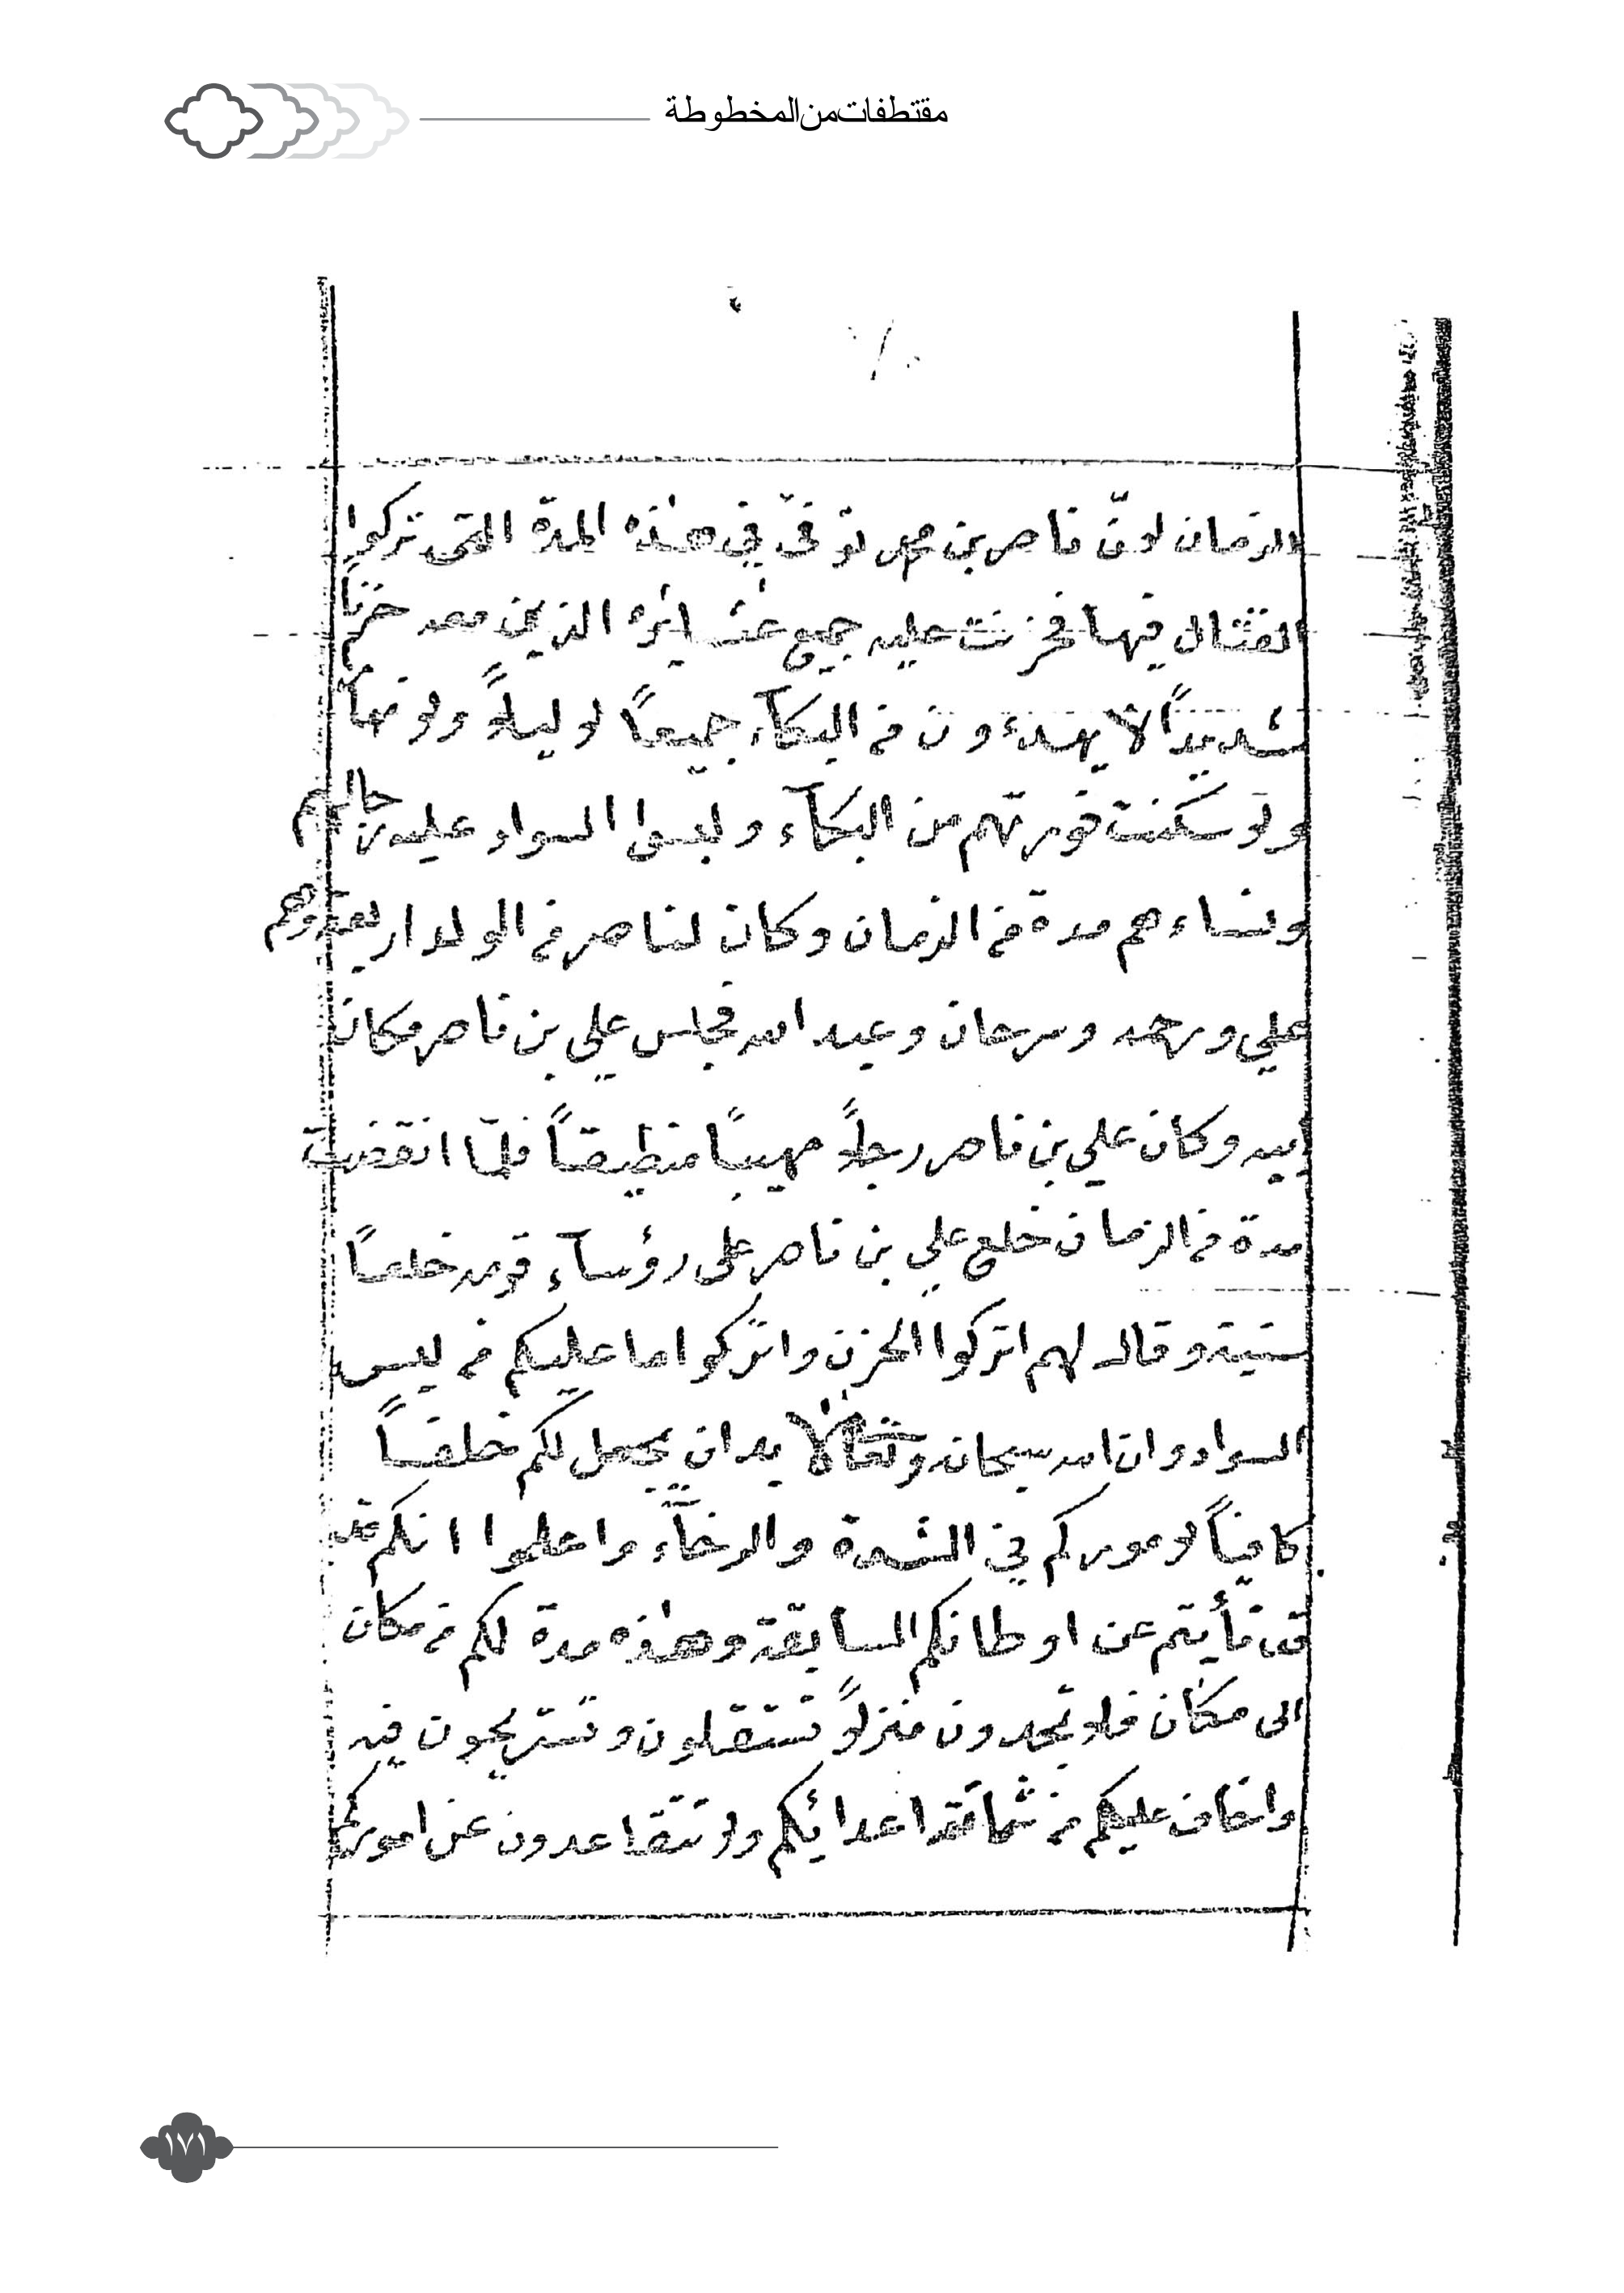 مقتطفات من المخطوطة
الزمان لانّ ناصر بن محمد توفىّ في هذه المدة التى تركوا
القتال فيها فحزنت عليه جميع عشايره الذين معه حزناً
شديداً لا يهدءون من البكآء جميعاً لا ليلاً ولا نهاراً
ولا سكنت فورتهم من البكآء ولبسوا السواد عليه رجالهم
ونساءهم مدة من الزمان وكان لناصر من الولد اربعة وهم
علي ورحمه وسرحان وعبد الله فجلس علي بن ناصر مكان
ابيه وكان علي بن ناصر رجلاً مهيباً منطيقاً فلمّا انقضت
مدة من الزمان خلع علي بن ناصر على رؤسآء قومه خلعاً
سنية وقال لهم اتركوا الحزن واتركوا ما عليكم من لبس
السواد وان الله سبحانه وتعالى لا بد ان يجعل لكم خلفاً
كافياً لاموركم في الشدة والرخآء واعلموا انكم
قد نأيتم عن اوطانكم السابقة وهذه مدة لكم من مكان
الى مكان فلا تجدون منزلاً تستقلون وتستريحون فيه
واخاف عليكم من شماتة اعدائكم ولا تتقاعدون عن اموركم
١٧١